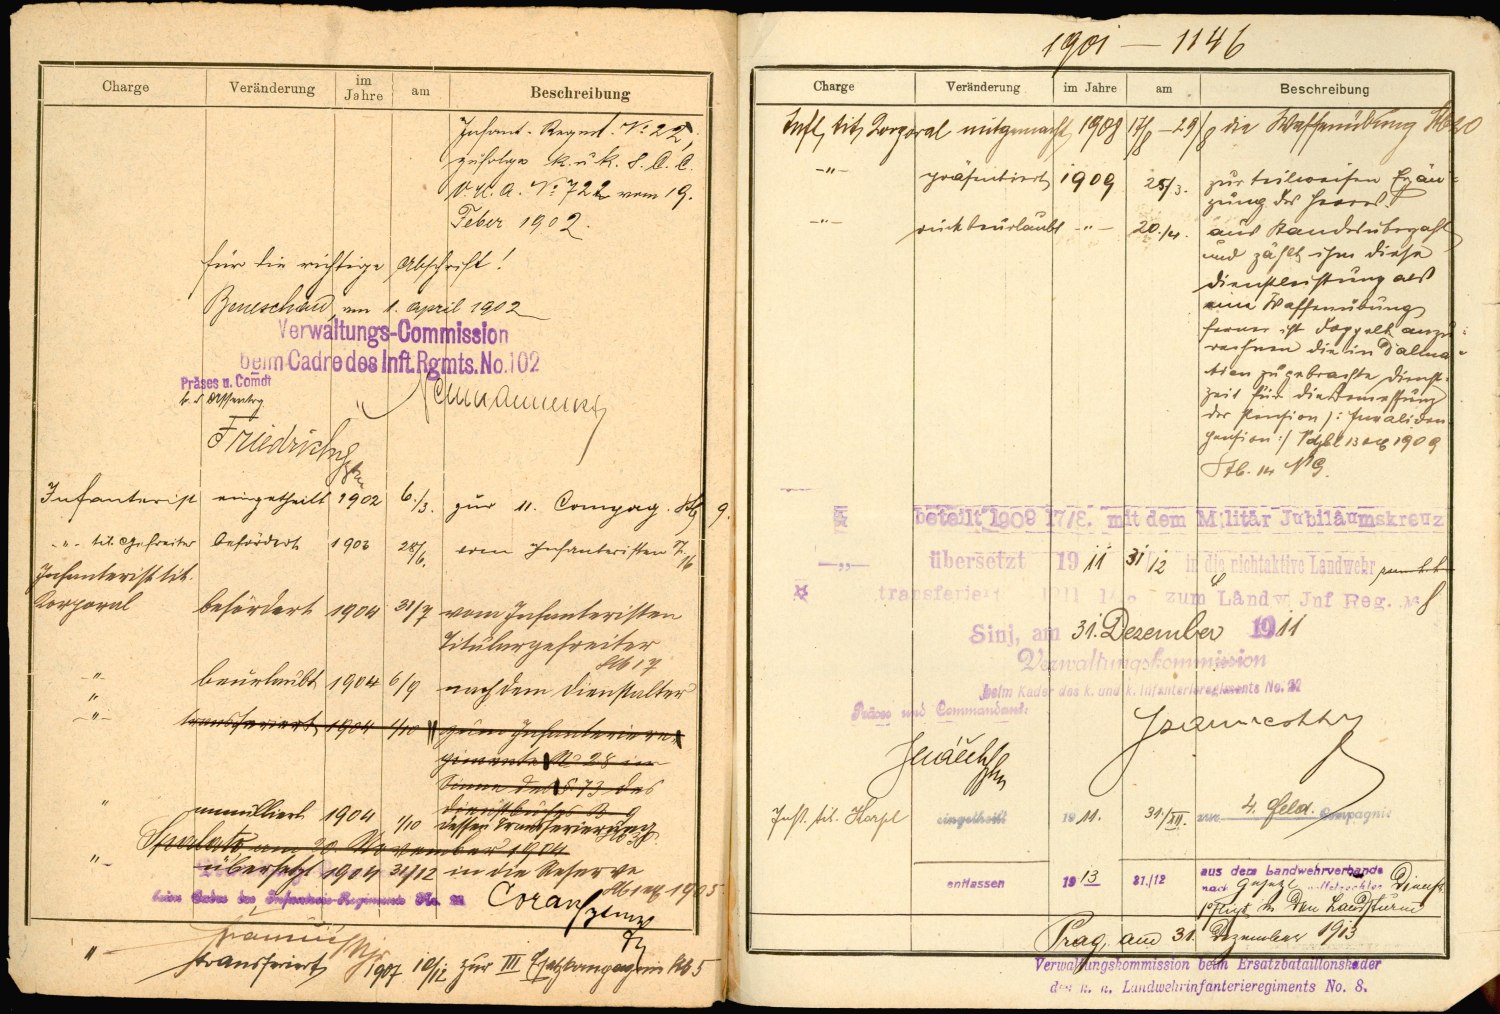 Charge Veränderung im Jahre am Beschreibung
Infant. Regmt. No 22,
zufolge k. u. k.
No 722 vom 19.
Feber 1902.
für die richtige Abschrift!
Beneschau, am 1. April 1902
Verwaltungs-Commission
beim Cadre des Inft. Rgmts. No. 102
Präses u. Comdt
Friedrich
Infanterist eingetheilt 1902 6./3. zur 11. Compag. 9.
-"- tit. Gefreiter befördert 28/6. vom Infanteristen 16
Infanterist tit.
Korporal befördert 1904 31/7 vom Infanteristen
Titulargefreiter
17
-"- beurlaubt 1904 6/9 nach dem Dienstalter
"
-"- transferiert 1904 1/10 zum Infanteriere-
gimente No 28 im
Sinne des § 73 des
Dienstbuches
" annulliert 1904 1/10 dessen Transferierung
Spalato am 20. November 1904
"- übersetzt 1904 31/12 in die Reserve
1905
beim Cadre des Infanterie-Regiments No. 22
"- transferiert 1907 10/12 zur III 5
1901 — 1146
Charge Veränderung im Jahre am Beschreibung
Inft. tit. Korporal mitgemacht 1908 17/8 - 29/8 die Waffenübung
-"- präsentiert 1909 28/3. zur teilweisen Ergän-
zung des Heeres.
-"- rückbeurlaubt -"- 20./4. aus Standesüberzahl
und zählt ihm diese
Dienstleistung als
eine Waffenübung
ferner ist doppelt anzu-
rechnen die in Dalma-
tien zugebrachte Dienst-
zeit für die Bemessung
der Pension /: Invaliden
pension :/ 1909
beteilt 1909 17/8. mit dem Militär Jubiläumskreuz
-"- übersetzt 1911 31/12 in die nichtaktive Landwehr
transferiert zum Landw Inf Reg. No 8
Sinj, am 31. Dezember 1911
Verwaltungskommission
beim Kader des k. und k. Infanterieregiments No. 22
Präses und Commandant:
Inft. tit. eingetheilt 1911. 31./XII. 4. Feld Compagnie
entlassen 1913 31./12 aus dem Landwehrverbande
nach Gesetz vollstreckter Dienst-
pflicht in den Landsturm
Prag, am 31. Dezember 1913
Verwaltungskommission beim Ersatzbataillonskader
des k. k. Landwehrinfanterieregiments No. 8.